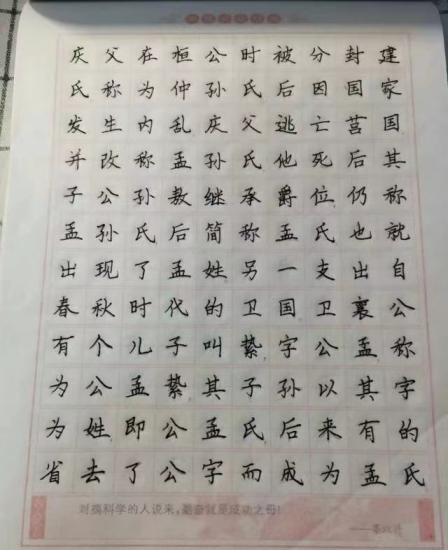 庆父在桓公时被分封建
氏称为仲孙氏后因国家
发生内乱庆父逃亡莒国
并改称孟孙氏他死后其
子公孙敖继承爵位仍称
孟孙氏后简称孟氏也就
出现了孟姓另一支出自
春秋时代的卫国卫襄公
有个儿子叫絷字公孟称
为公孟絷其子孙以其字
为姓即公孟氏后来有的
省去了公字而成为孟氏
对搞科学的人说来,勤奋就是成功之母!